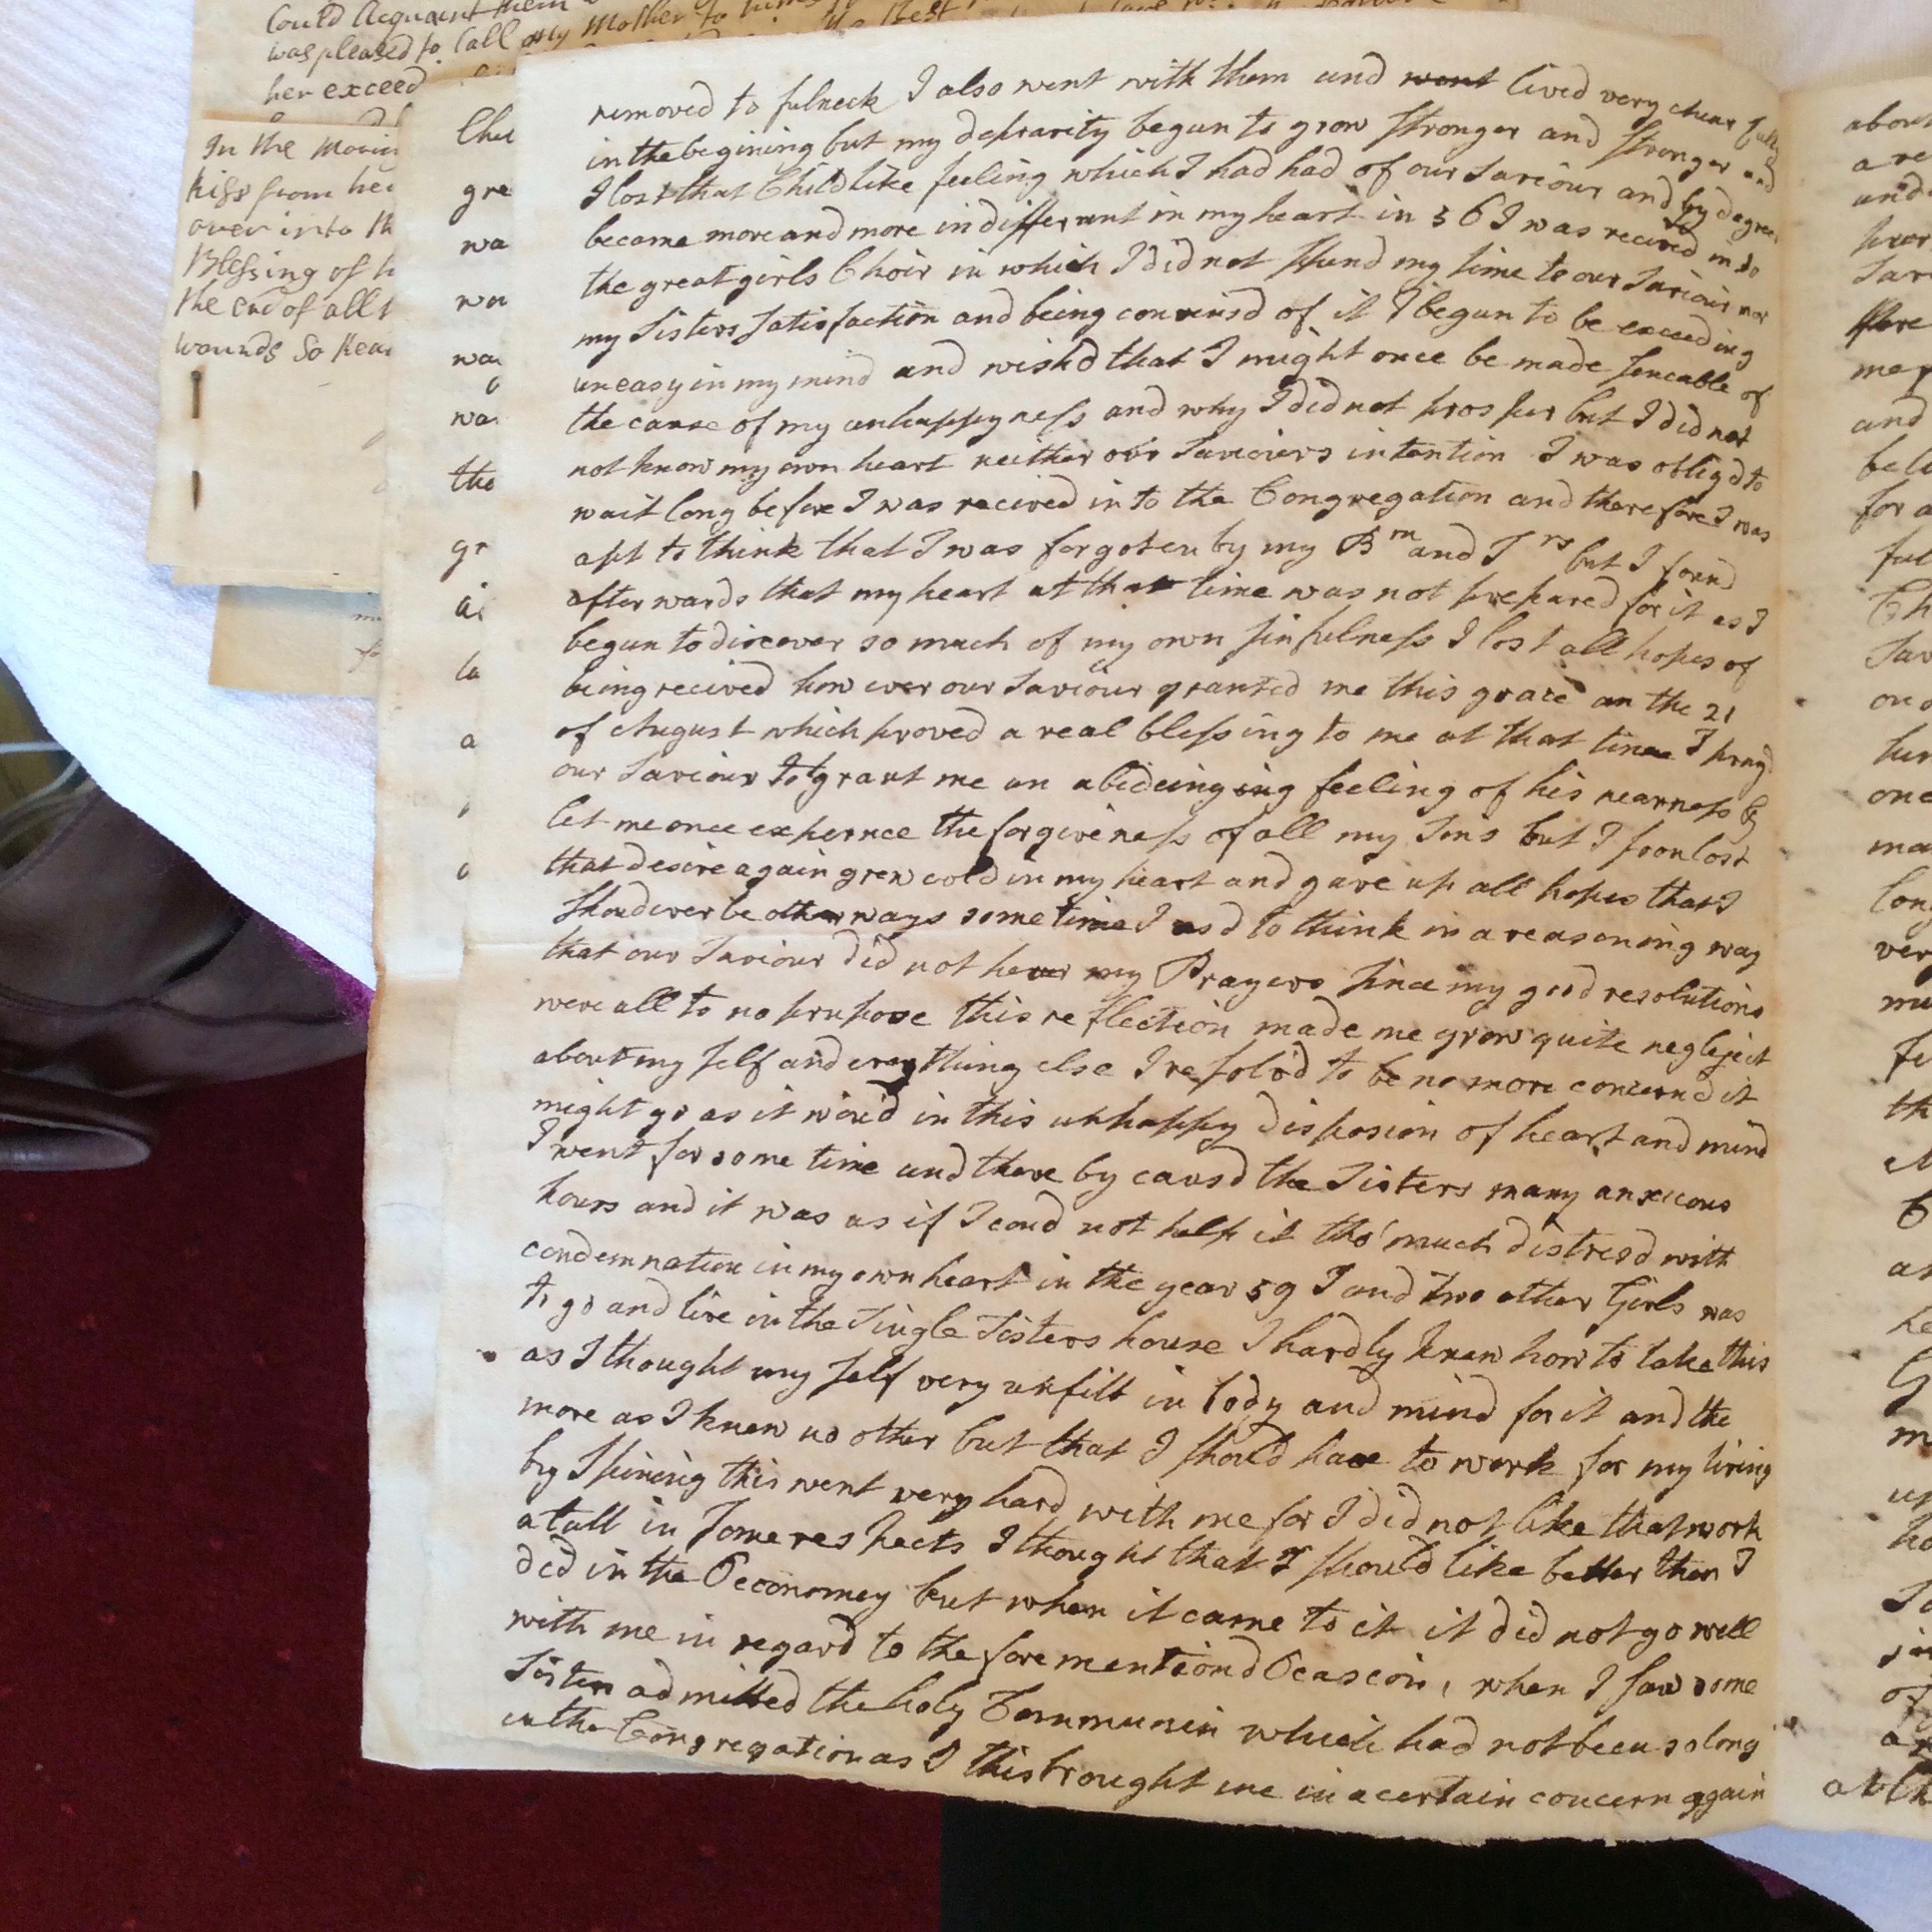 Could Acquaint them
was pleased to Call my Mother to
her exceed
In the Mornin
kiss from her
over into th
Blessing of h
the end of all
wounds So
Chu
gre
wa
wa
wa
wa
the
gr
la
a
removed to fulneck I also went with them and went lived very chear fully
in the begining but my depravity begun to grow stronger and stronger and
I lost that Childlike feeling which I had had of our Saviour and by degrees
became more and more indifferunt in my heart in 56 I was recived in to
the great girls Choir in which I did not spend my time to our Saviour nor
my Sisters Satisfaction and being convinsd of it I begun to be exceeding
uneasy in my mind and wish'd that I might once be made senceable of
the cause of my unhappyness and why I did not prosper but I did not
not know my own heart neither our Saviours intention I was obligd to
wait long before I was recived in to the Congregation and therefore I was
apt to think that I was forgoten by my Brn and Srs but I found
afterwards that my heart at that time was not prepared for it as I
begun to discover so much of my own sinfulness I lost all hopes of
being recived how ever our Saviour granted me this grace on the 21
of August which proved a real blessing to me at that time I pray'd
our Saviour to grant me an abideinging feeling of his nearness &
let me once expernce the forgiveness of all my Sins but I soon lost
that desire again grew cold in my heart and gave up all hopes that I
shoud ever be otherways some time I usd to think in a reasoning way
that our Saviour did not hear my Prayers since my good resolutions
were all to no prupose this reflection made me grow quite negleject
about my self and everything else I resolv'd to be no more concernd it
might go as it wou'd in this unhappy disposion of heart and mind
I went for some time and there by causd the Sisters many anxious
hours and it was as if I coud not help it tho' much distresd with
condemnation in my own heart in the year 59 I and two other Girls was
to go and live in the Single Sisters house I hardly knew how to take this
as I thought my self very unfitt in body and mind for it and the
more as I knew no other but that I should have to work for my living
by Spining this went very hard with me for I did not like that work
atall in some respects I thought that I should like better then I
did in the Oeconomey but when it came to it it did not go well
with me in regard to the fore mentiond Ocascion, when I saw some
Sisters admitted the holy Communin which had not been so long
in the Congregation as I this brought me in a certain concern again
about
a re
and
Sav
me
and
for a
Ch
Sav
one
ma
long
ver
mu
th
at
he
G
m
up
of